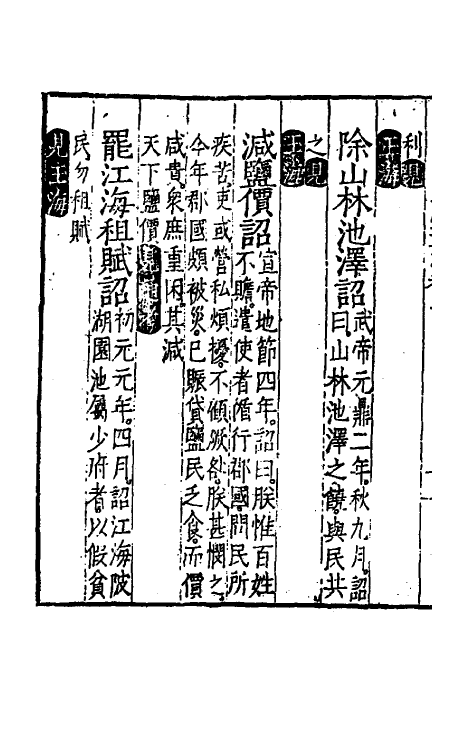 利見
玉海
除山林池澤詔武帝元鼎二年秋九月詔
曰山林池澤之饒與民共
之見
玉海
減鹽價詔宣帝地節四年詔曰朕惟百姓
不贍遣使者循行郡國問民所
疾苦吏或營私煩擾不顧厥咎朕甚憫之
今年郡國頗被災已賑貸鹽民乏食而價
咸貴衆庶重困其減
天下鹽價
罷江海租賦詔初元元年四月詔江海陂
湖園池屬少府者以假貧
民勿租賦
見玉海